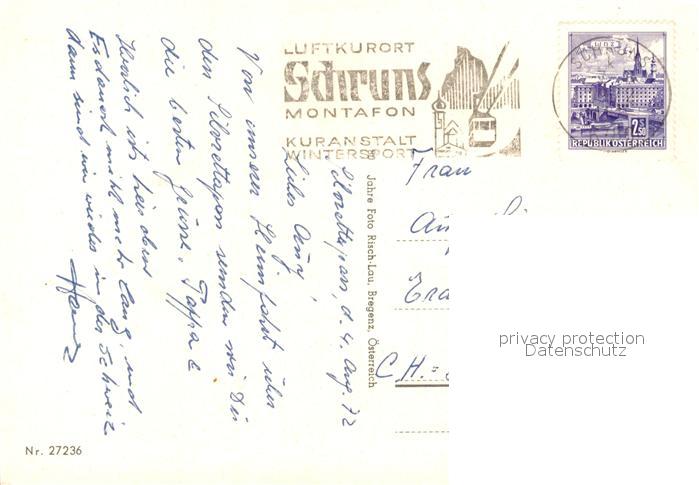 LUFTKURORT
Schruns
MONTAFON
KURANSTALT
WINTERSPORT
SCHRUNS
LINZ
2.50
S
REPUBLIK ÖSTERREICH
Silvrettapass, d. 4. Aug. 72
Liebes Anny,
Von unserer Heimfahrt über
den Silvrettapass senden wir Dir
die besten Grüsse. Pappa &
Herrlich ist hier oben
Es dauert nicht mehr lang, und
dann sind wir wieder in der Schweiz.
Hanz
Jahre Foto Risch-Lau, Bregenz, Österreich
Frau
An
CH.=
Nr. 27236
privacy protection
Datenschutz